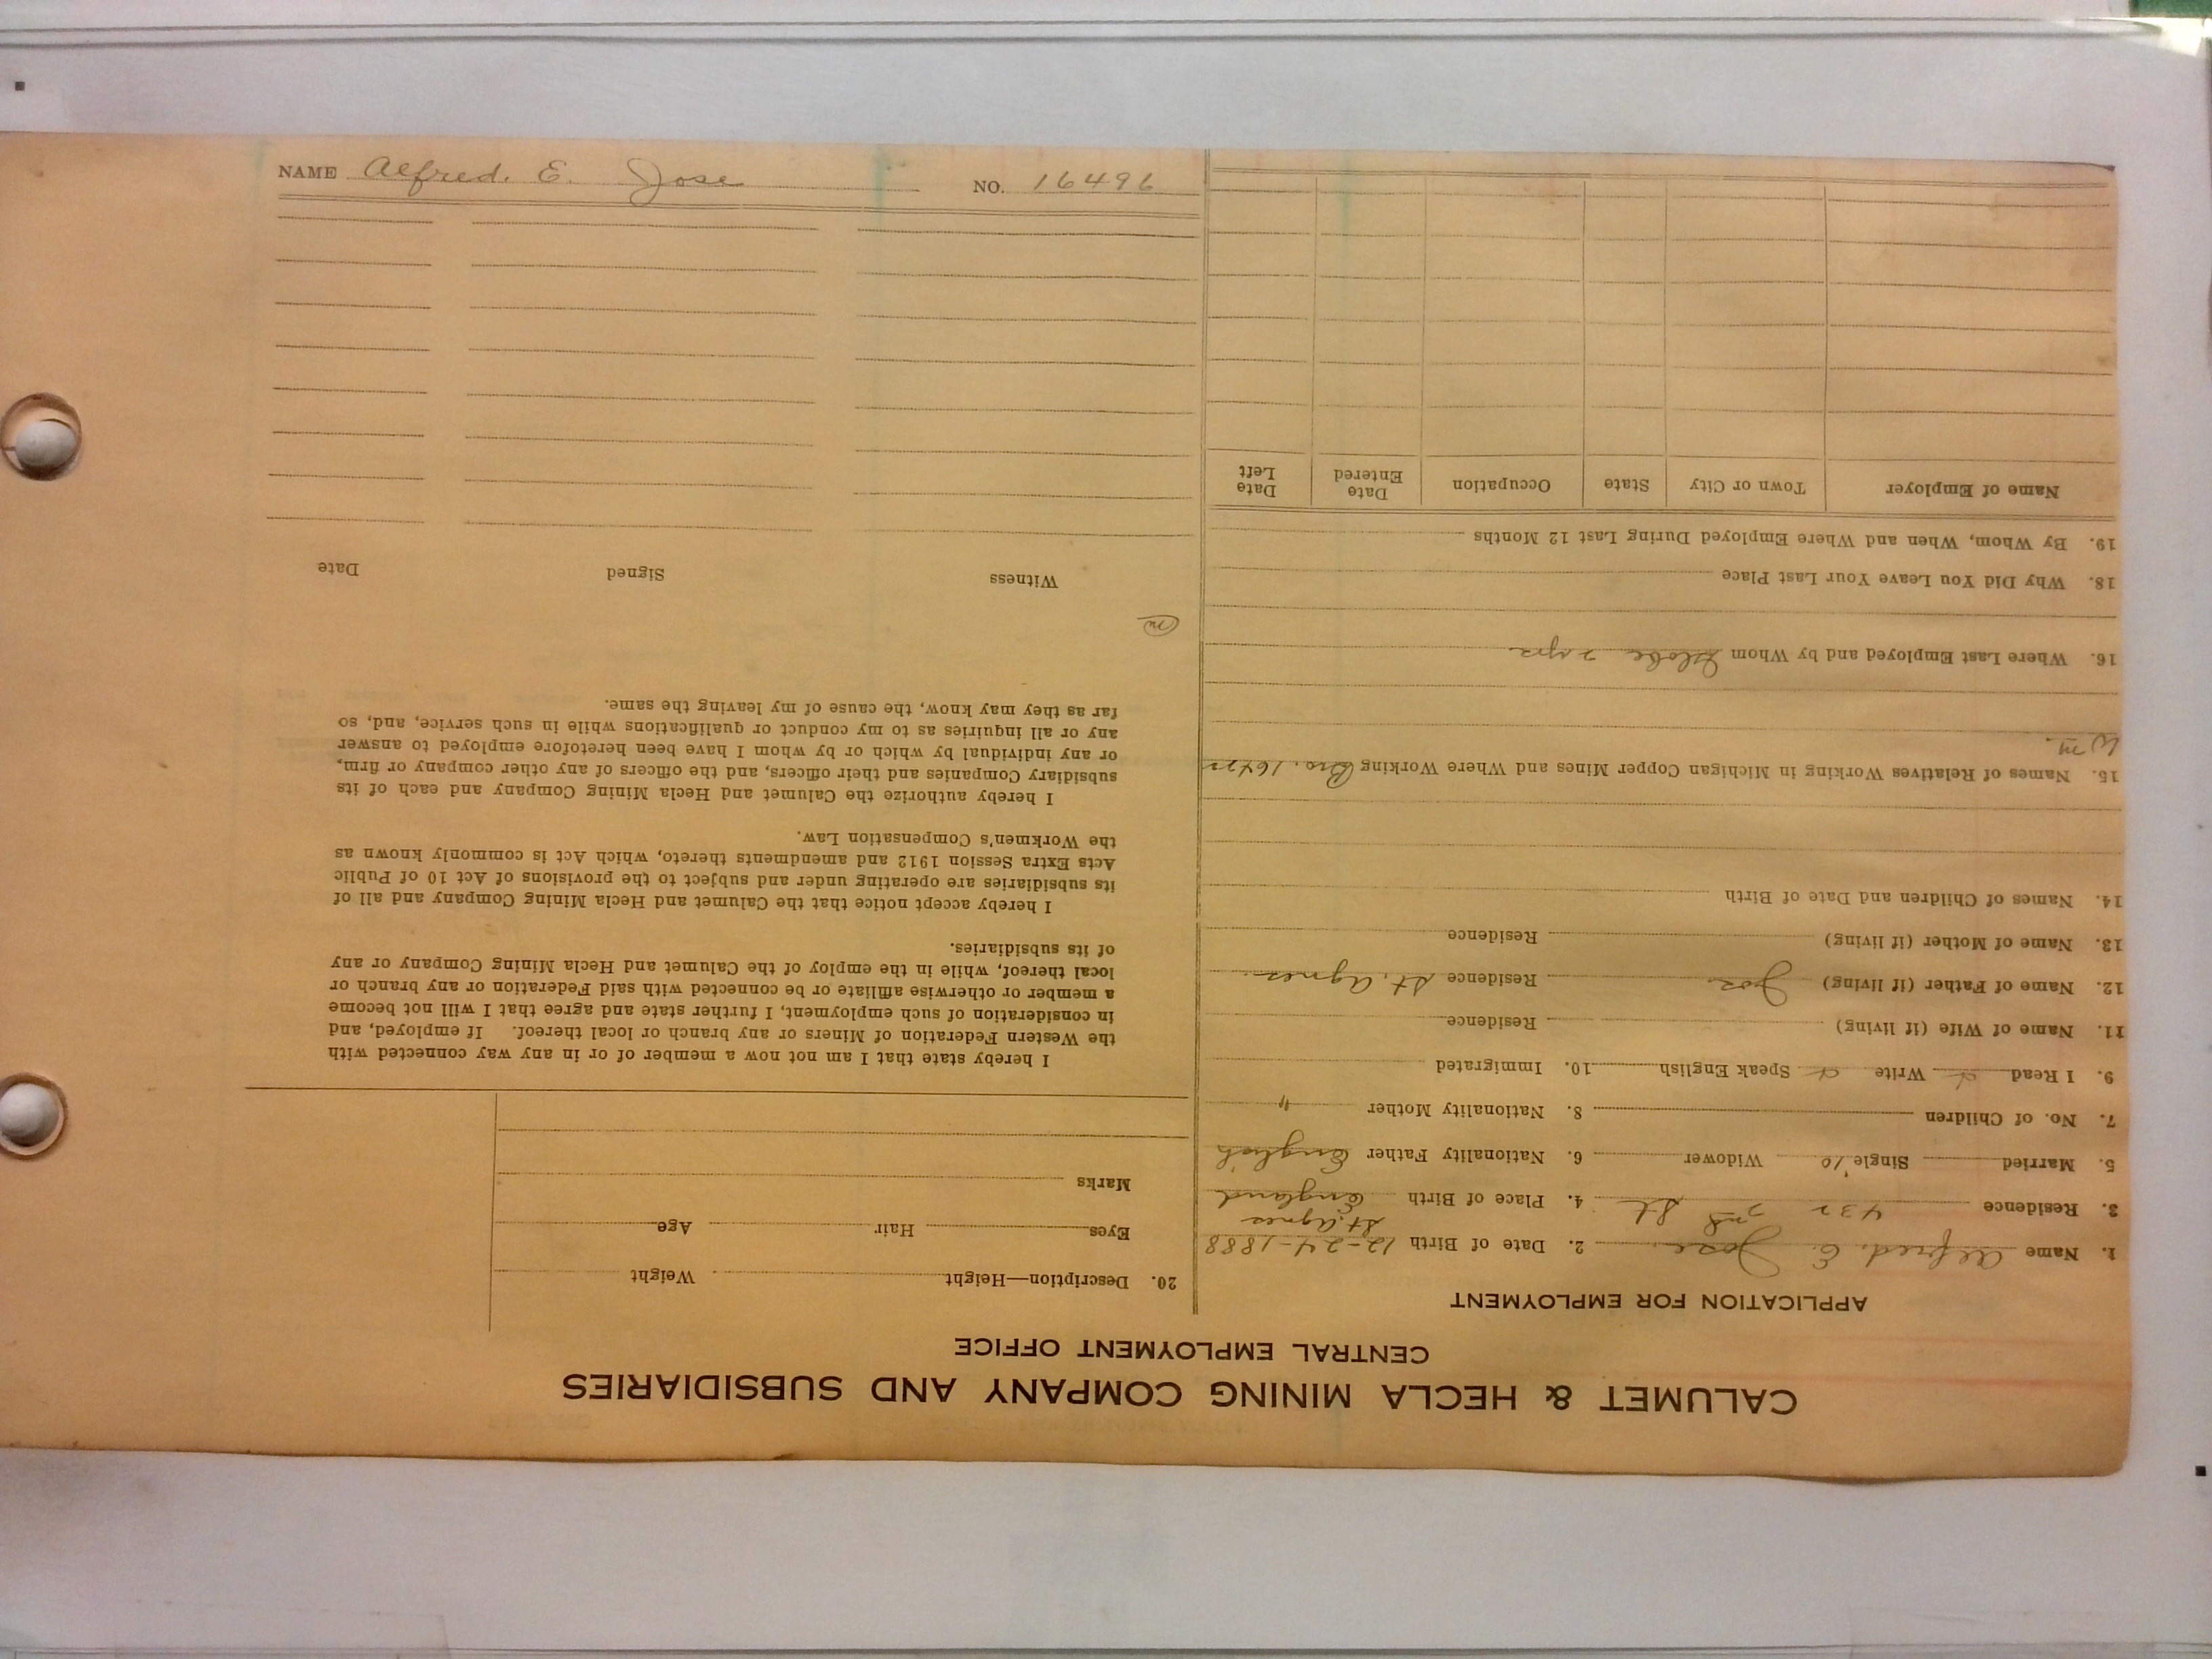 NAME Alfred. E. Jose NO. 16496
CALUMET & HECLA MINING COMPANY AND SUBSIDIARIES
CENTRAL EMPLOYMENT OFFICE
APPLICATION FOR EMPLOYMENT
1. Name Alfred. E. Jose. 2. Date of Birth 12-24-1888
St. Agnes
3. Residence 432 2nd St 4. Place of Birth England
5. Married Single Widower 6. Nationality Father English
7. No. of Children 8. Nationality Mother "
9. I Read Write Speak English 10. Immigrated
11. Name of Wife (if living) Residence
12. Name of Father (if living) Jos. Residence St. Agnes
13. Name of Mother (if living) Residence
14. Names of Children and Date of Birth
15. Names of Relatives Working in Michigan Copper Mines and Where Working Bro.
Wm.
16. Where Last Employed and by Whom Globe 2 yrs
18. Why Did You Leave Your Last Place
19. By Whom, When and Where Employed During Last 12 Months
Name of Employer Town or City State Occupation Date Entered Date Left
20. Description—Height Weight
Eyes Hair Age
Marks
I hereby state that I am not now a member of or in any way connected with
the Western Federation of Miners or any branch or local thereof. If employed, and
in consideration of such employment, I further state and agree that I will not become
a member or otherwise affiliate or be connected with said Federation or any branch or
local thereof, while in the employ of the Calumet and Hecla Mining Company or any
of its subsidiaries.
I hereby accept notice that the Calumet and Hecla Mining Company and all of
its subsidiaries are operating under and subject to the provisions of Act 10 of Public
Acts Extra Session 1912 and amendments thereto, which Act is commonly known as
the Workmen's Compensation Law.
I hereby authorize the Calumet and Hecla Mining Company and each of its
subsidiary Companies and their officers, and the officers of any other company or firm,
or any individual by which or by whom I have been heretofore employed to answer
any or all inquiries as to my conduct or qualifications while in such service, and, so
far as they may know, the cause of my leaving the same.
Witness Signed Date